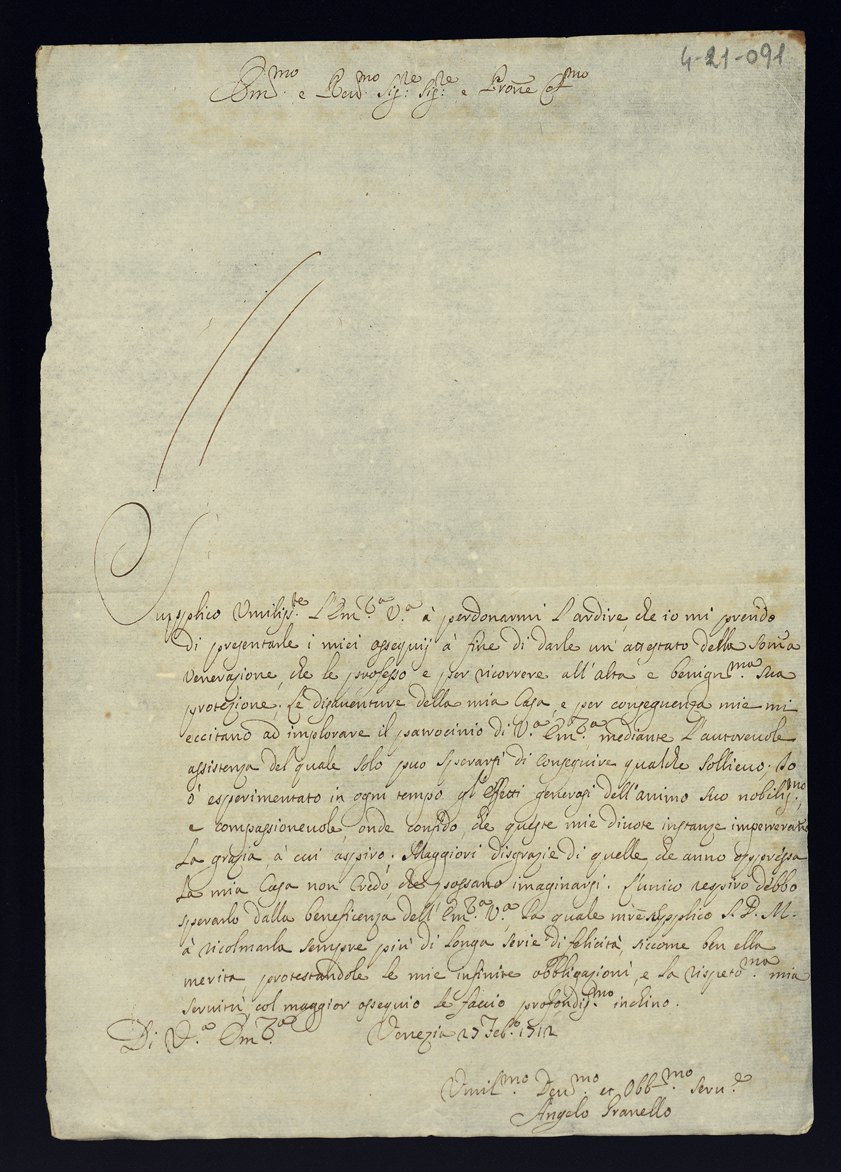 4-21-091
Em.mo e Rev.mo Sig.re Sig.re e Prōne Col.mo
Supplico Umiliss.te l'Em.za V.a à perdonarmi l'ardire, che io mi prendo
di presentarle i miei ossequij à fine di darle un attestato della som̄a
venerazione, che le professo e per ricorrere all'alta e benign.ma sua
protezione. Le disauenture della mia Casa, e per conseguenza mie mi
eccitano ad implorare il patrocinio di V.a Em.za mediante l'autoreuole
assistenza del quale solo può sperarsi di conseguire qualche sollieuo. Io
ò esperimentato in ogni tempo gl'effetti generosi dell'animo suo nobiliss.mo,
e compassioneuole, onde confido che queste mie diuote instanze impetrerano
la grazia, à cui aspiro. Maggiori disgrazie di quelle che anno oppressa
la mia Casa non Credo, che possano imaginarsi. L'unico respiro debbo
sperarlo dalla beneficenza dell'Em.za V.a la quale mentre supplico S. D. M.
à ricolmarla sempre più di longa serie di felicità, siccome ben ella
merita, protestandole le mie infinite obbligazioni, e la rispeto.ma mia
seruitù, col maggior ossequio le faccio profondiss.mo inchino.
Di V.a Em.za Venezia 27 Feb.o 1712
Umil.mo Deu.mo et Obb.mo Seru.e
Angelo Granello